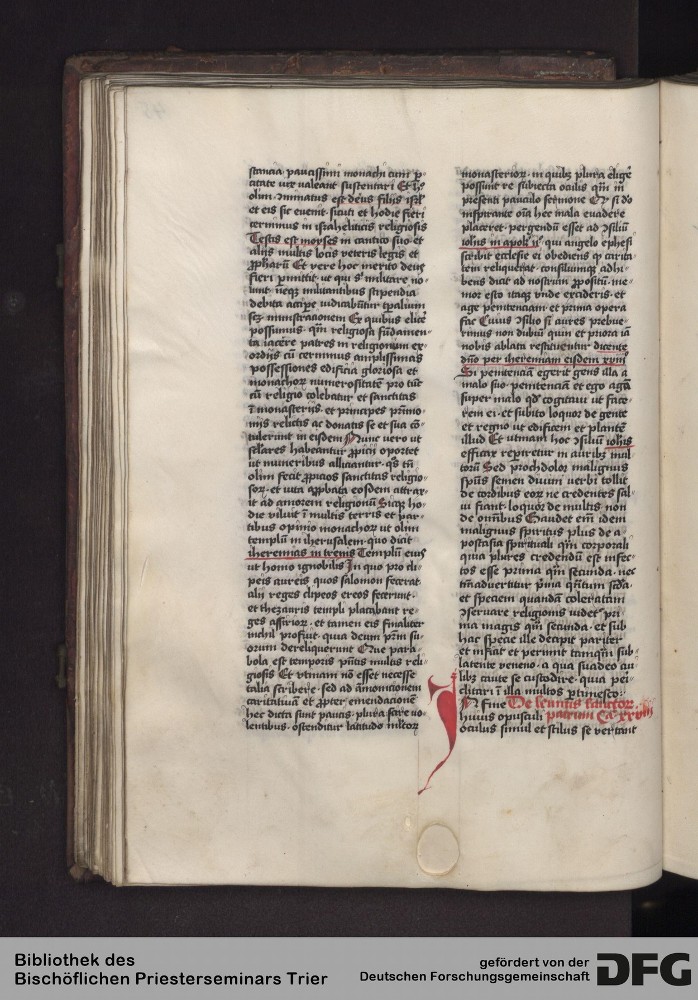 stancia paucissimi monachi cum p̄
citate vix valeant sustentari Et h̓
olim ōminatus est deus filijs isrl̓
et eis sic euenit sicuti et hodie fieri
cernimus in israheliticis religiosis
Testis est moyses in cantico suo et
alijs multis locis veteris legis et
ꝓpharū Et vere hoc merito deus
fieri ꝑmittit ut qui s̓ militare no
lunt neqꝫ militantibus stipendia
debita accipe iudicabūtur tꝑalium
scꝫ ministracionem Ex quibus elice
possumus qm̄ religiosa fūdamen
ta iacere patres in religionum ex
ordijs cū cernimus amplissimas
possessiones edificia gloriosa et
monachoꝝ numerositatē pro tūc
cū religio colebatur et sanctitas
ī monasterijs et principes p̄imo
nijs relictis ac donatis se et sua cō
tulerint in eisdem Nunc vero ut
sclares habeantur ꝓpicij oportet
ut muneribus alliciantur qs tn̄
olim fecit ꝓpicios sanctitas religio
soꝝ et uita aꝓbata eosdem attrax
it ad amorem religionū Sicqꝫ ho
die viluit ī multis terris et par
tibus opinio monachoꝝ ut olim
templū in iherusalem quo dicit
iheremias in trenis Templū eius
ut homo ignobilis In quo pro cli
peis aureis quos salomon fecerat
alij reges clipeos ereos fecerunt
et thezauris templi placabant re
ges assirioꝝ et tamen eis finaliter
nichil profuit quia deum pr̄m su
orum dereliquerunt Que para
bola est temporis pn̄tis multis reli
giosis Et vtinam nō esset necesse
talia scribere sed ad āmonicionem
caritatiuā et ꝓpter emendacionē
hec dicta sunt paucis plura scire vo
lentibus ostenditur latitudo milcoꝝ
monasterioꝝ in quibꝫ plura elige
possunt re subiecta oculis qm̄ in
presenti paucilo sermone Et si do
inspirante oīa hec mala euadere
placeret pergendū esset ad ɔsiliū
ioh̄is in apoc̄ ij° qui angelo ephesi
scribit ecclesie ei obediens qꝫ carita
tem reliquerat consiliumqꝫ adhi
bens dicit ad nostram ꝓpositū me
mor esto itaqꝫ vnde excideris et
age penitenciam et prima opera
fac Cuius ɔsilio si aures prebue
rimus non dubiū quin et priora iā
nobis ablata restituentur dicente
dn̄o per iheremiam eisdem xviij°
Si penitenciā egerit gens illa a
malo suo penitenciam et ego agā
super malo qd̓ cogitaui ut face
rem ei et subito loquor de gente
et regno ut edificem et plantē
illud Et vtinam hoc ɔsiliū ioh̄is
efficax reperiretur in auribꝫ mul
torū Sed prochdolor malignus
spūs semen diuini verbi tollit
de cordibus eoꝝ ne credentes sal
ui fiant loquor de multis non
de omībus Gaudet em̄ idem
malignus spiritus plus de a
postasia spirituali qm̄ corporali
quia plures credendū est infec
tos esse prima qm̄ secunda nec
tm̄ aduertitur p̄ma qn̄tum scd̄a
et speciem quandā coleratam
ɔseruare religionis videt pri
ma magis qm̄ secunda et sub
hac specie ille decipit pariter
et inficit et perimit tamqm̄ sub
latente veneno a qua suadeo cui
libꝫ caute se custodire quia pei
clitari ī illa multos ꝑtimesco
De sentēcijs sanctoꝝ
patrum Ca xxviij
In fine
huius opusculi
oculus simul et stilus se vertant
Bibliothek des
Bischöflichen Priesterseminars Trier
gefördert von der
Deutschen Forschungsgemeinschaft
DFG